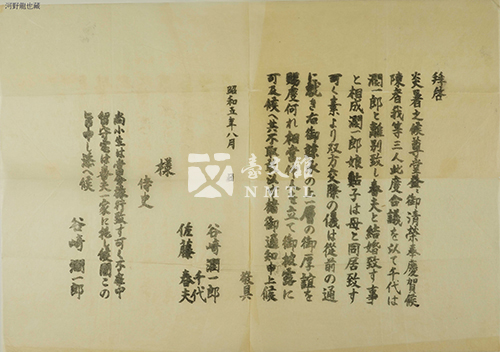 河野龍也蔵
拝啓
炎暑之候尊堂益々御清栄奉慶賀候
陳者我等三人此度合議を以て千代は
潤一郎と離別致し春夫と結婚致す事
と相成潤一郎娘鮎子は母と同居致す
可く素より双方交際の儀は従前の通
に就き右御諒承の上一層の御厚誼を
賜度何れ相当仲人を立て御披露に
可及候へ共不取敢以寸楮御通知申上候
敬具
昭和五年八月 日
谷崎潤一郎
千代
佐藤春夫
様
侍史
尚小生は当分旅行致す可く不在中
留守宅は春夫一家に托し候間この
旨申し添へ候
谷崎潤一郎
臺文館
NMTL